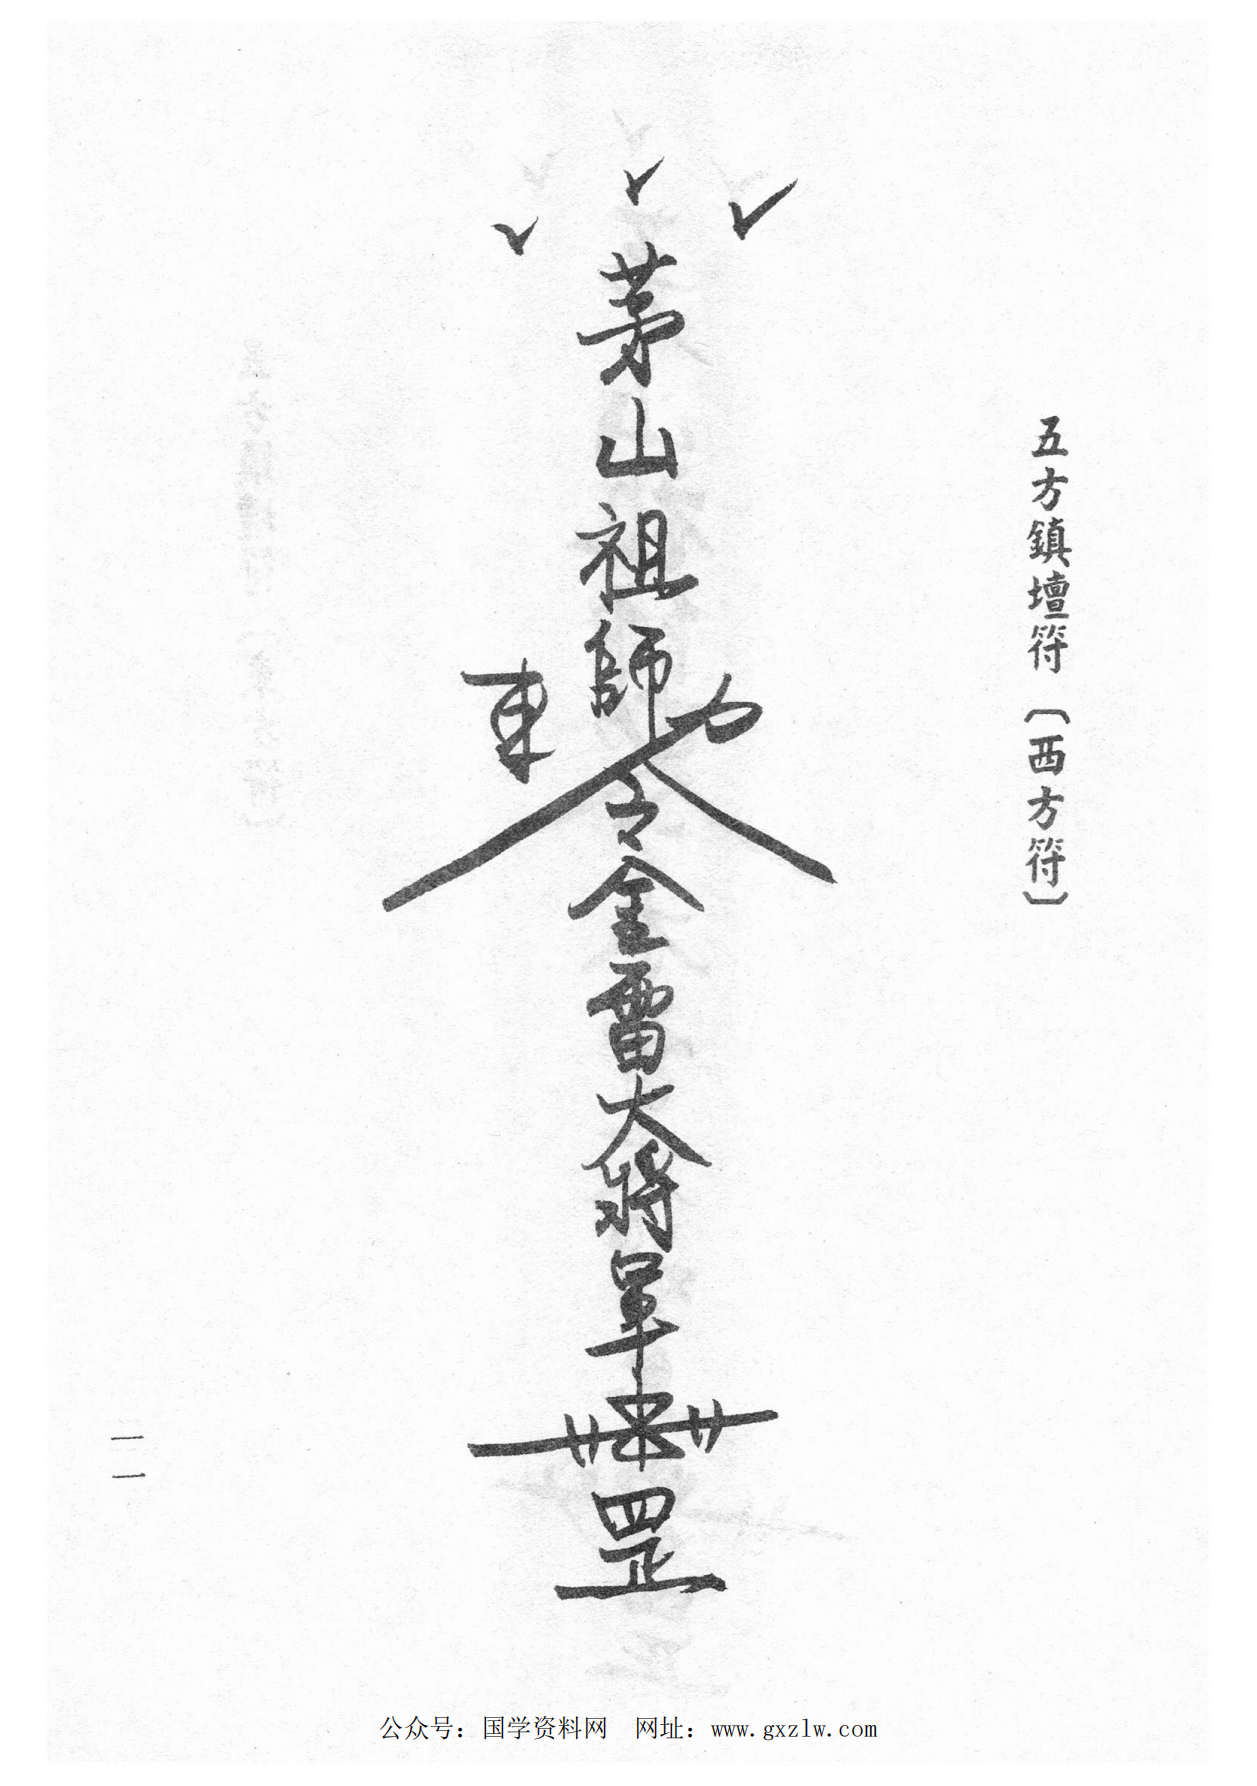 五方鎮壇符〔西方符〕
茅山祖師
令金雷大將軍
罡
一一
公众号：国学资料网　网址：www.gxzlw.com